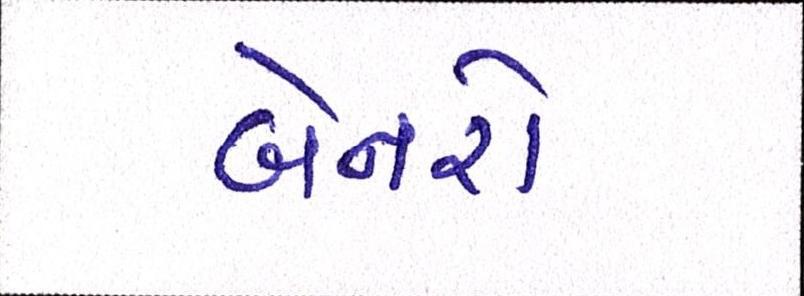 બેનરો